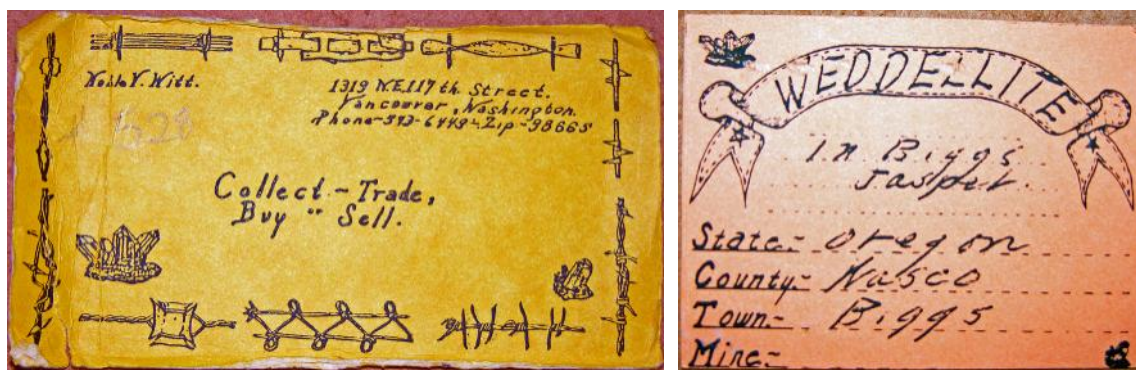 Noble V. Witt.
1319 N.E.117th Street.
Vancouver, Washington.
Phone- Zip-98665
Collect - Trade,
Buy " Sell.
WEDDELLITE
In Biggs
Jasper.
State:- Oregon
County:- Wasco
Town:- Biggs
Mine:-